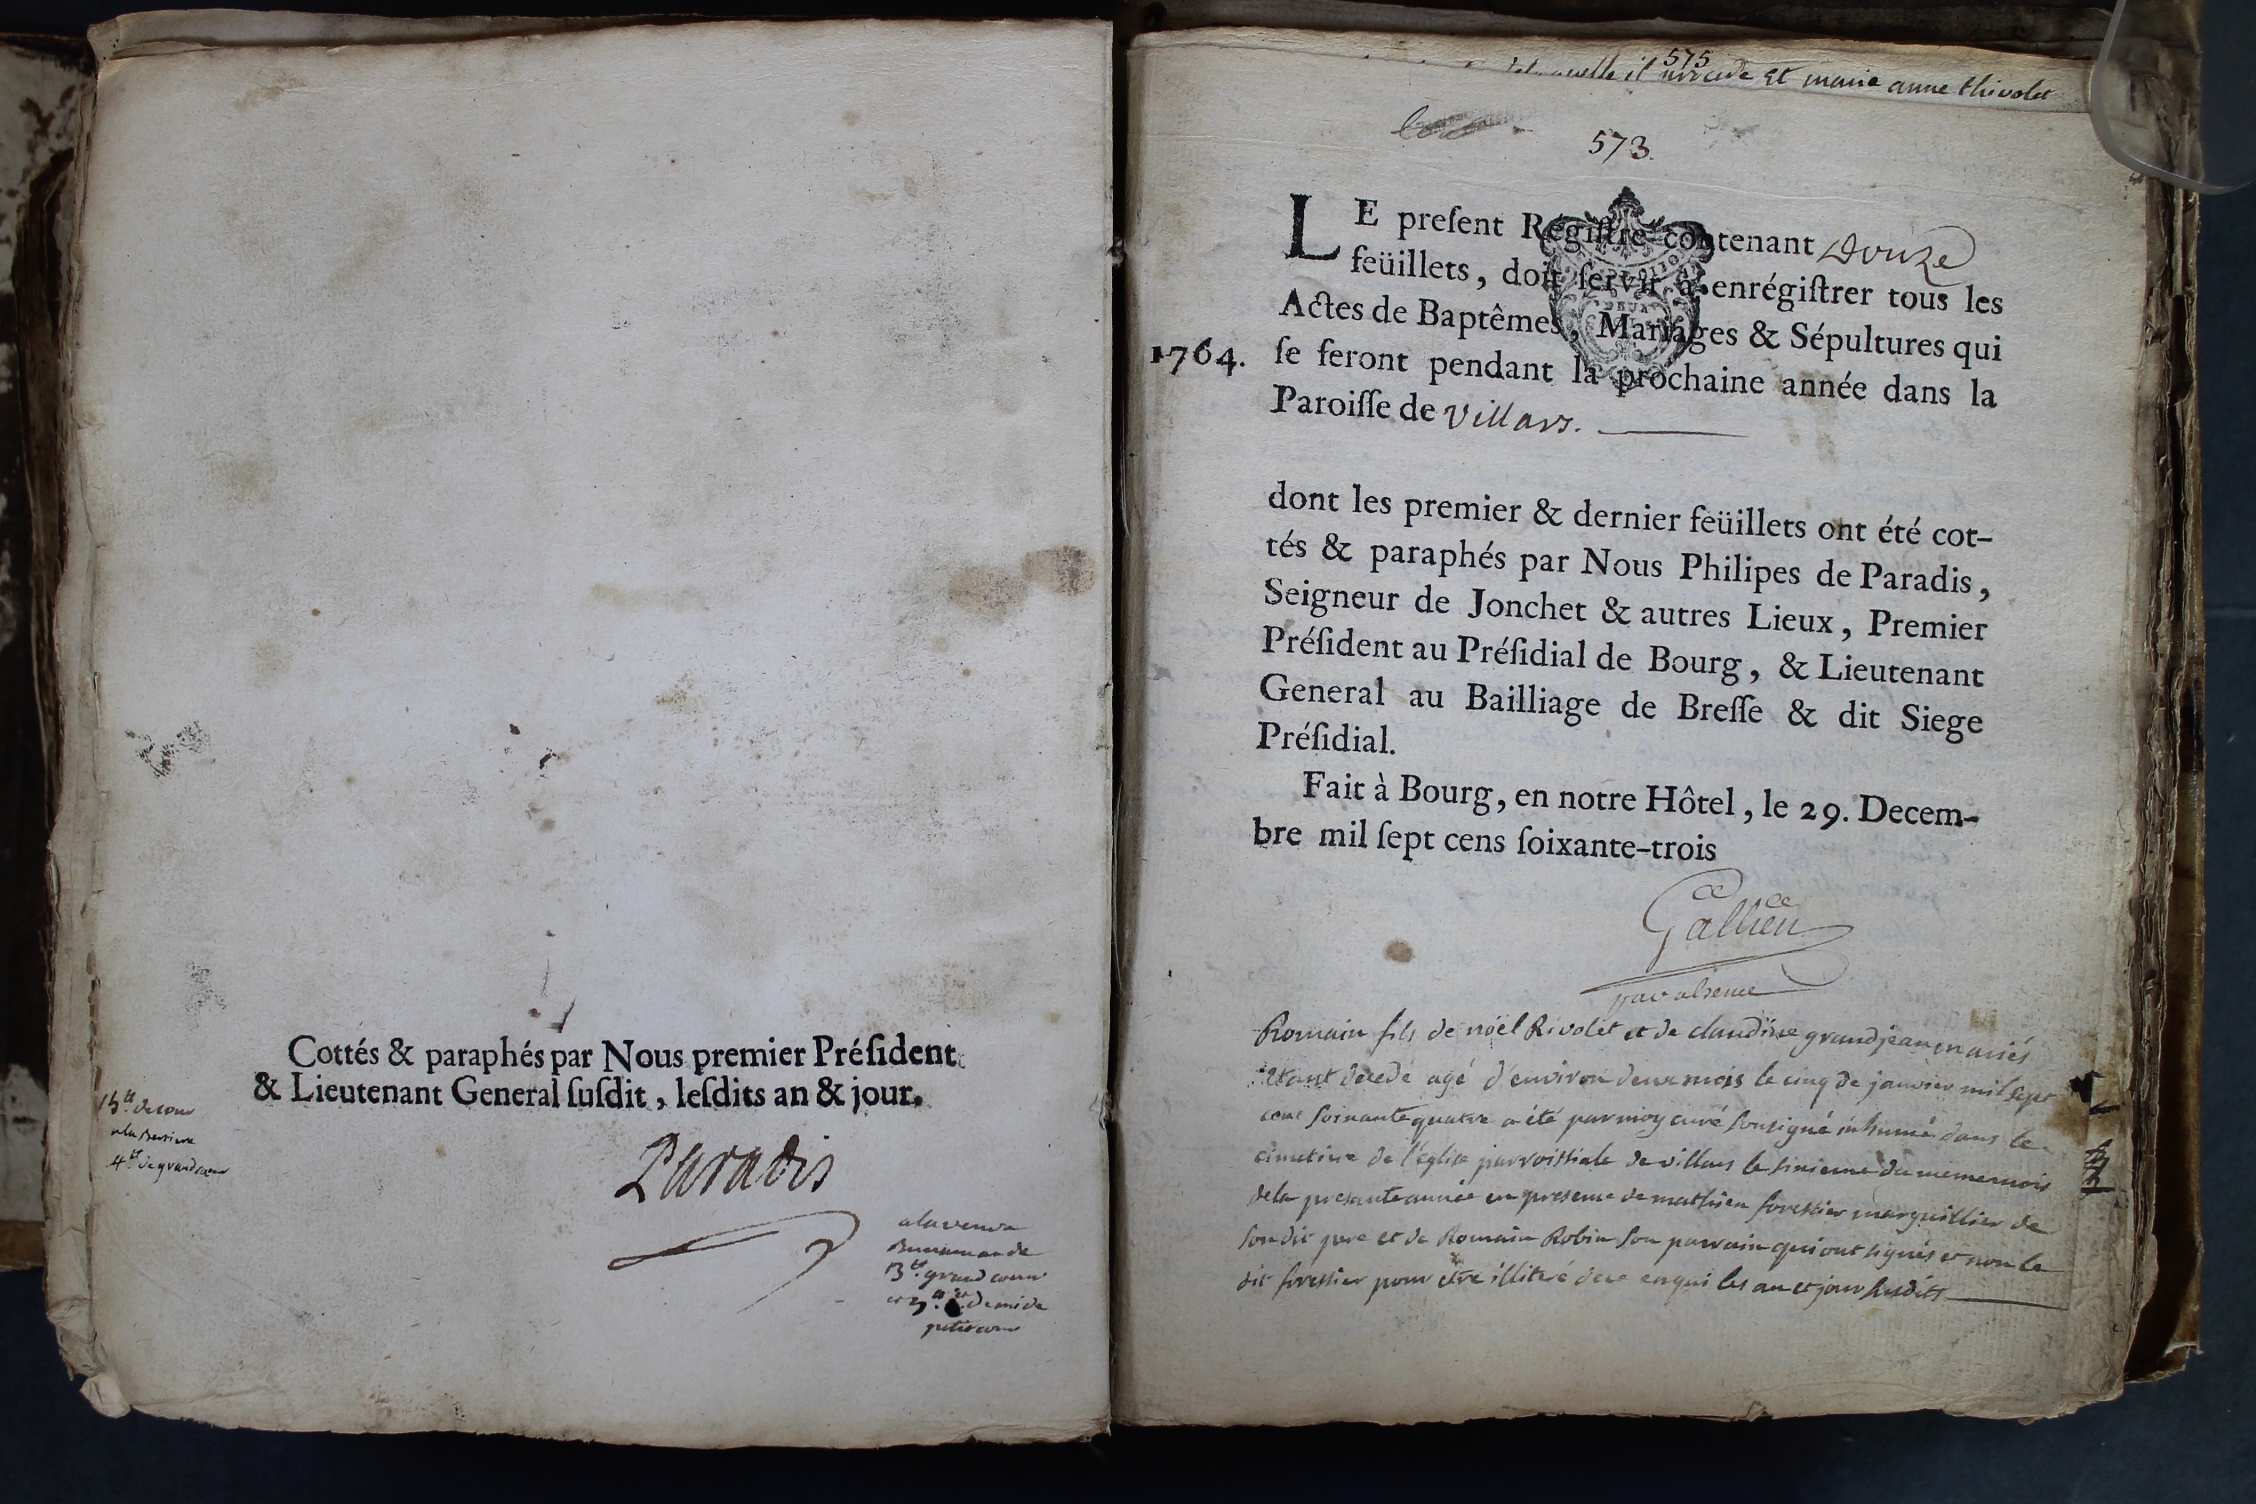 Cottés & paraphés par Nous premier Président
& Lieutenant General ſuſdit, leſdits an & jour.
Paradis
a la veuve
grand
575
et marie anne thivolet
573.
LE preſent Régiſtre contenant Douze
feüillets, doit ſervir à enrégiſtrer tous les
Actes de Baptêmes, Mariages & Sépultures qui
1764. ſe feront pendant la prochaine année dans la
Paroiſſe de Villars.
dont les premier & dernier feüillets ont été cot-
tés & paraphés par Nous Philipes de Paradis,
Seigneur de Jonchet & autres Lieux, Premier
Préſident au Préſidial de Bourg, & Lieutenant
General au Bailliage de Breſſe & dit Siege
Préſidial.
Fait à Bourg, en notre Hôtel, le 29. Decem-
bre mil ſept cens ſoixante-trois
Gallien
par absence
Romain fils de noël Rivolet et de claudine grandjean mariés
étant decedé agé d'environ deux mois le cinq de janvier mil sept
cent soixante quatre a été par moy curé sousigné inhumé dans le
cimetiere de l'eglise parroissiale de villars le sixieme du meme mois
de la presante année en presence de mathieu forestier marguillier de
son dit pere et de Romain Robin son parrain qui ont signés et non le
dit forestier pour etre illiteré de ce enqui les an et jour susdits